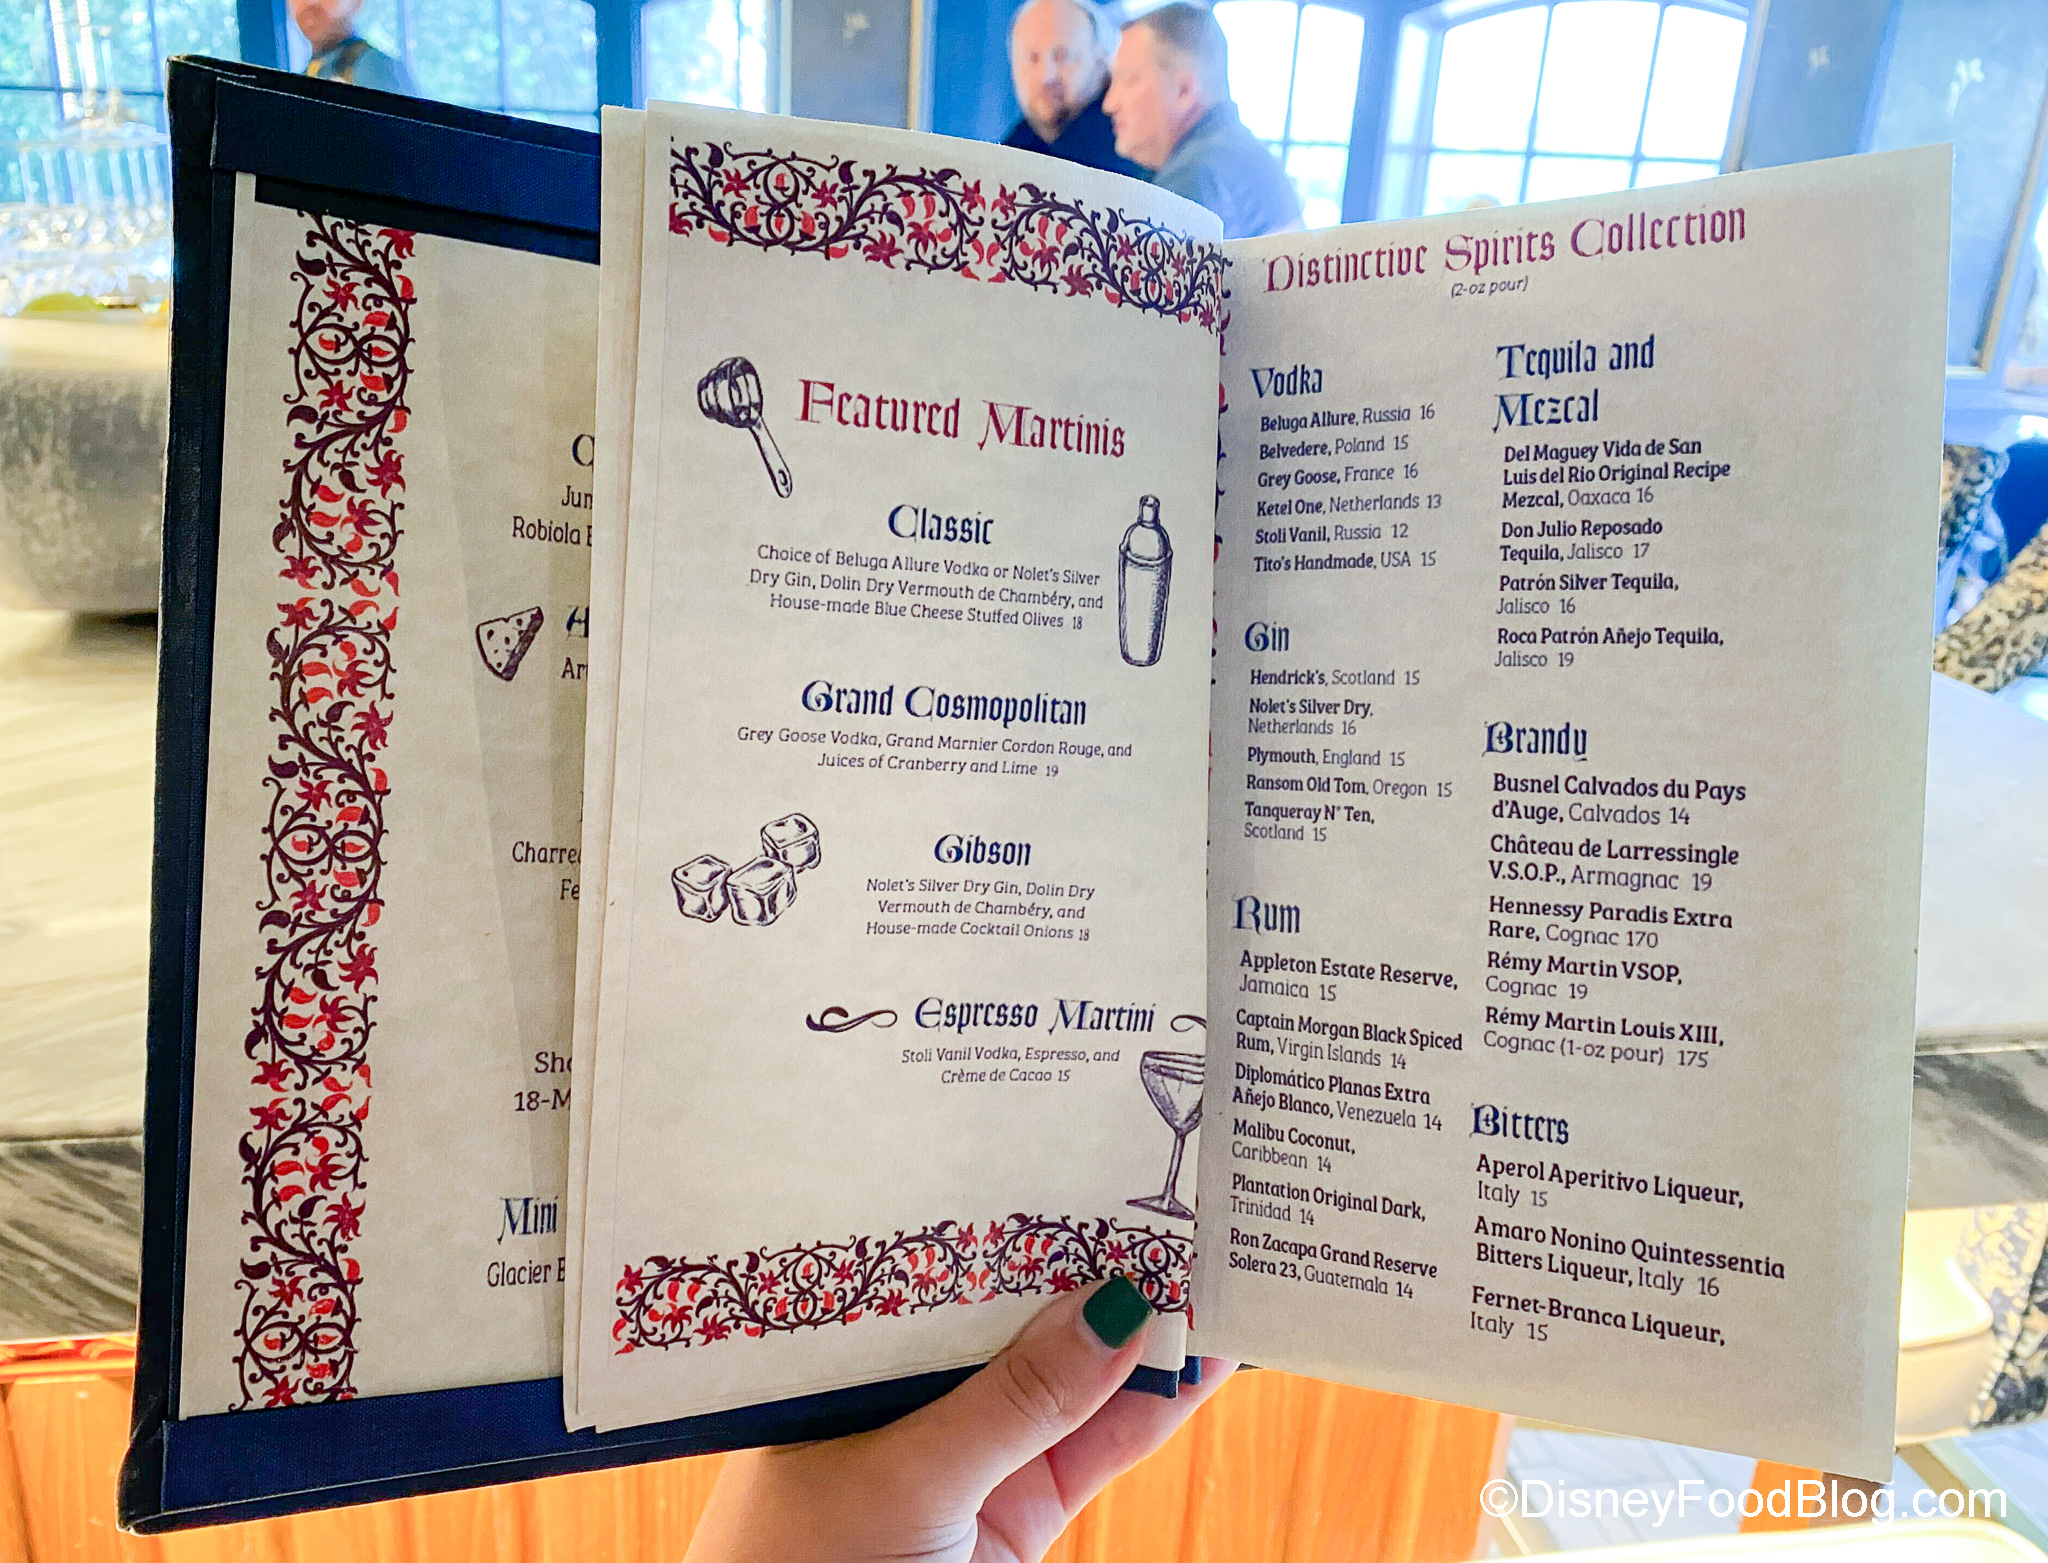 Jun
Robiola
Charre
18-M
Mini
Glacier
Featured Martinis
Classic
Choice of Beluga Allure Vodka or Nolet's Silver
Dry Gin, Dolin Dry Vermouth de Chambéry, and
House-made Blue Cheese Stuffed Olives 18
Grand Cosmopolitan
Grey Goose Vodka, Grand Marnier Cordon Rouge, and
Juices of Cranberry and Lime 19
Gibson
Nolet's Silver Dry Gin, Dolin Dry
Vermouth de Chambéry, and
House-made Cocktail Onions 18
Espresso Martini
Stoli Vanil Vodka, Espresso, and
Crème de Cacao 15
Distinctive Spirits Collection
(2-oz pour)
Vodka
Beluga Allure, Russia 16
Belvedere, Poland 15
Grey Goose, France 16
Ketel One, Netherlands 13
Stoli Vanil, Russia 12
Tito's Handmade, USA 15
Gin
Hendrick's, Scotland 15
Nolet's Silver Dry,
Netherlands 16
Plymouth, England 15
Ransom Old Tom, Oregon 15
Tanqueray N° Ten,
Scotland 15
Rum
Appleton Estate Reserve,
Jamaica 15
Captain Morgan Black Spiced
Rum, Virgin Islands 14
Diplomático Planas Extra
Añejo Blanco, Venezuela 14
Malibu Coconut,
Caribbean 14
Plantation Original Dark,
Trinidad 14
Ron Zacapa Grand Reserve
Solera 23, Guatemala 14
Tequila and
Mezcal
Del Maguey Vida de San
Luis del Rio Original Recipe
Mezcal, Oaxaca 16
Don Julio Reposado
Tequila, Jalisco 17
Patrón Silver Tequila,
Jalisco 16
Roca Patrón Añejo Tequila,
Jalisco 19
Brandy
Busnel Calvados du Pays
d'Auge, Calvados 14
Château de Larressingle
V.S.O.P., Armagnac 19
Hennessy Paradis Extra
Rare, Cognac 170
Rémy Martin VSOP,
Cognac 19
Rémy Martin Louis XIII,
Cognac (1-oz pour) 175
Bitters
Aperol Aperitivo Liqueur,
Italy 15
Amaro Nonino Quintessentia
Bitters Liqueur, Italy 16
Fernet-Branca Liqueur,
Italy 15
©DisneyFoodBlog.com